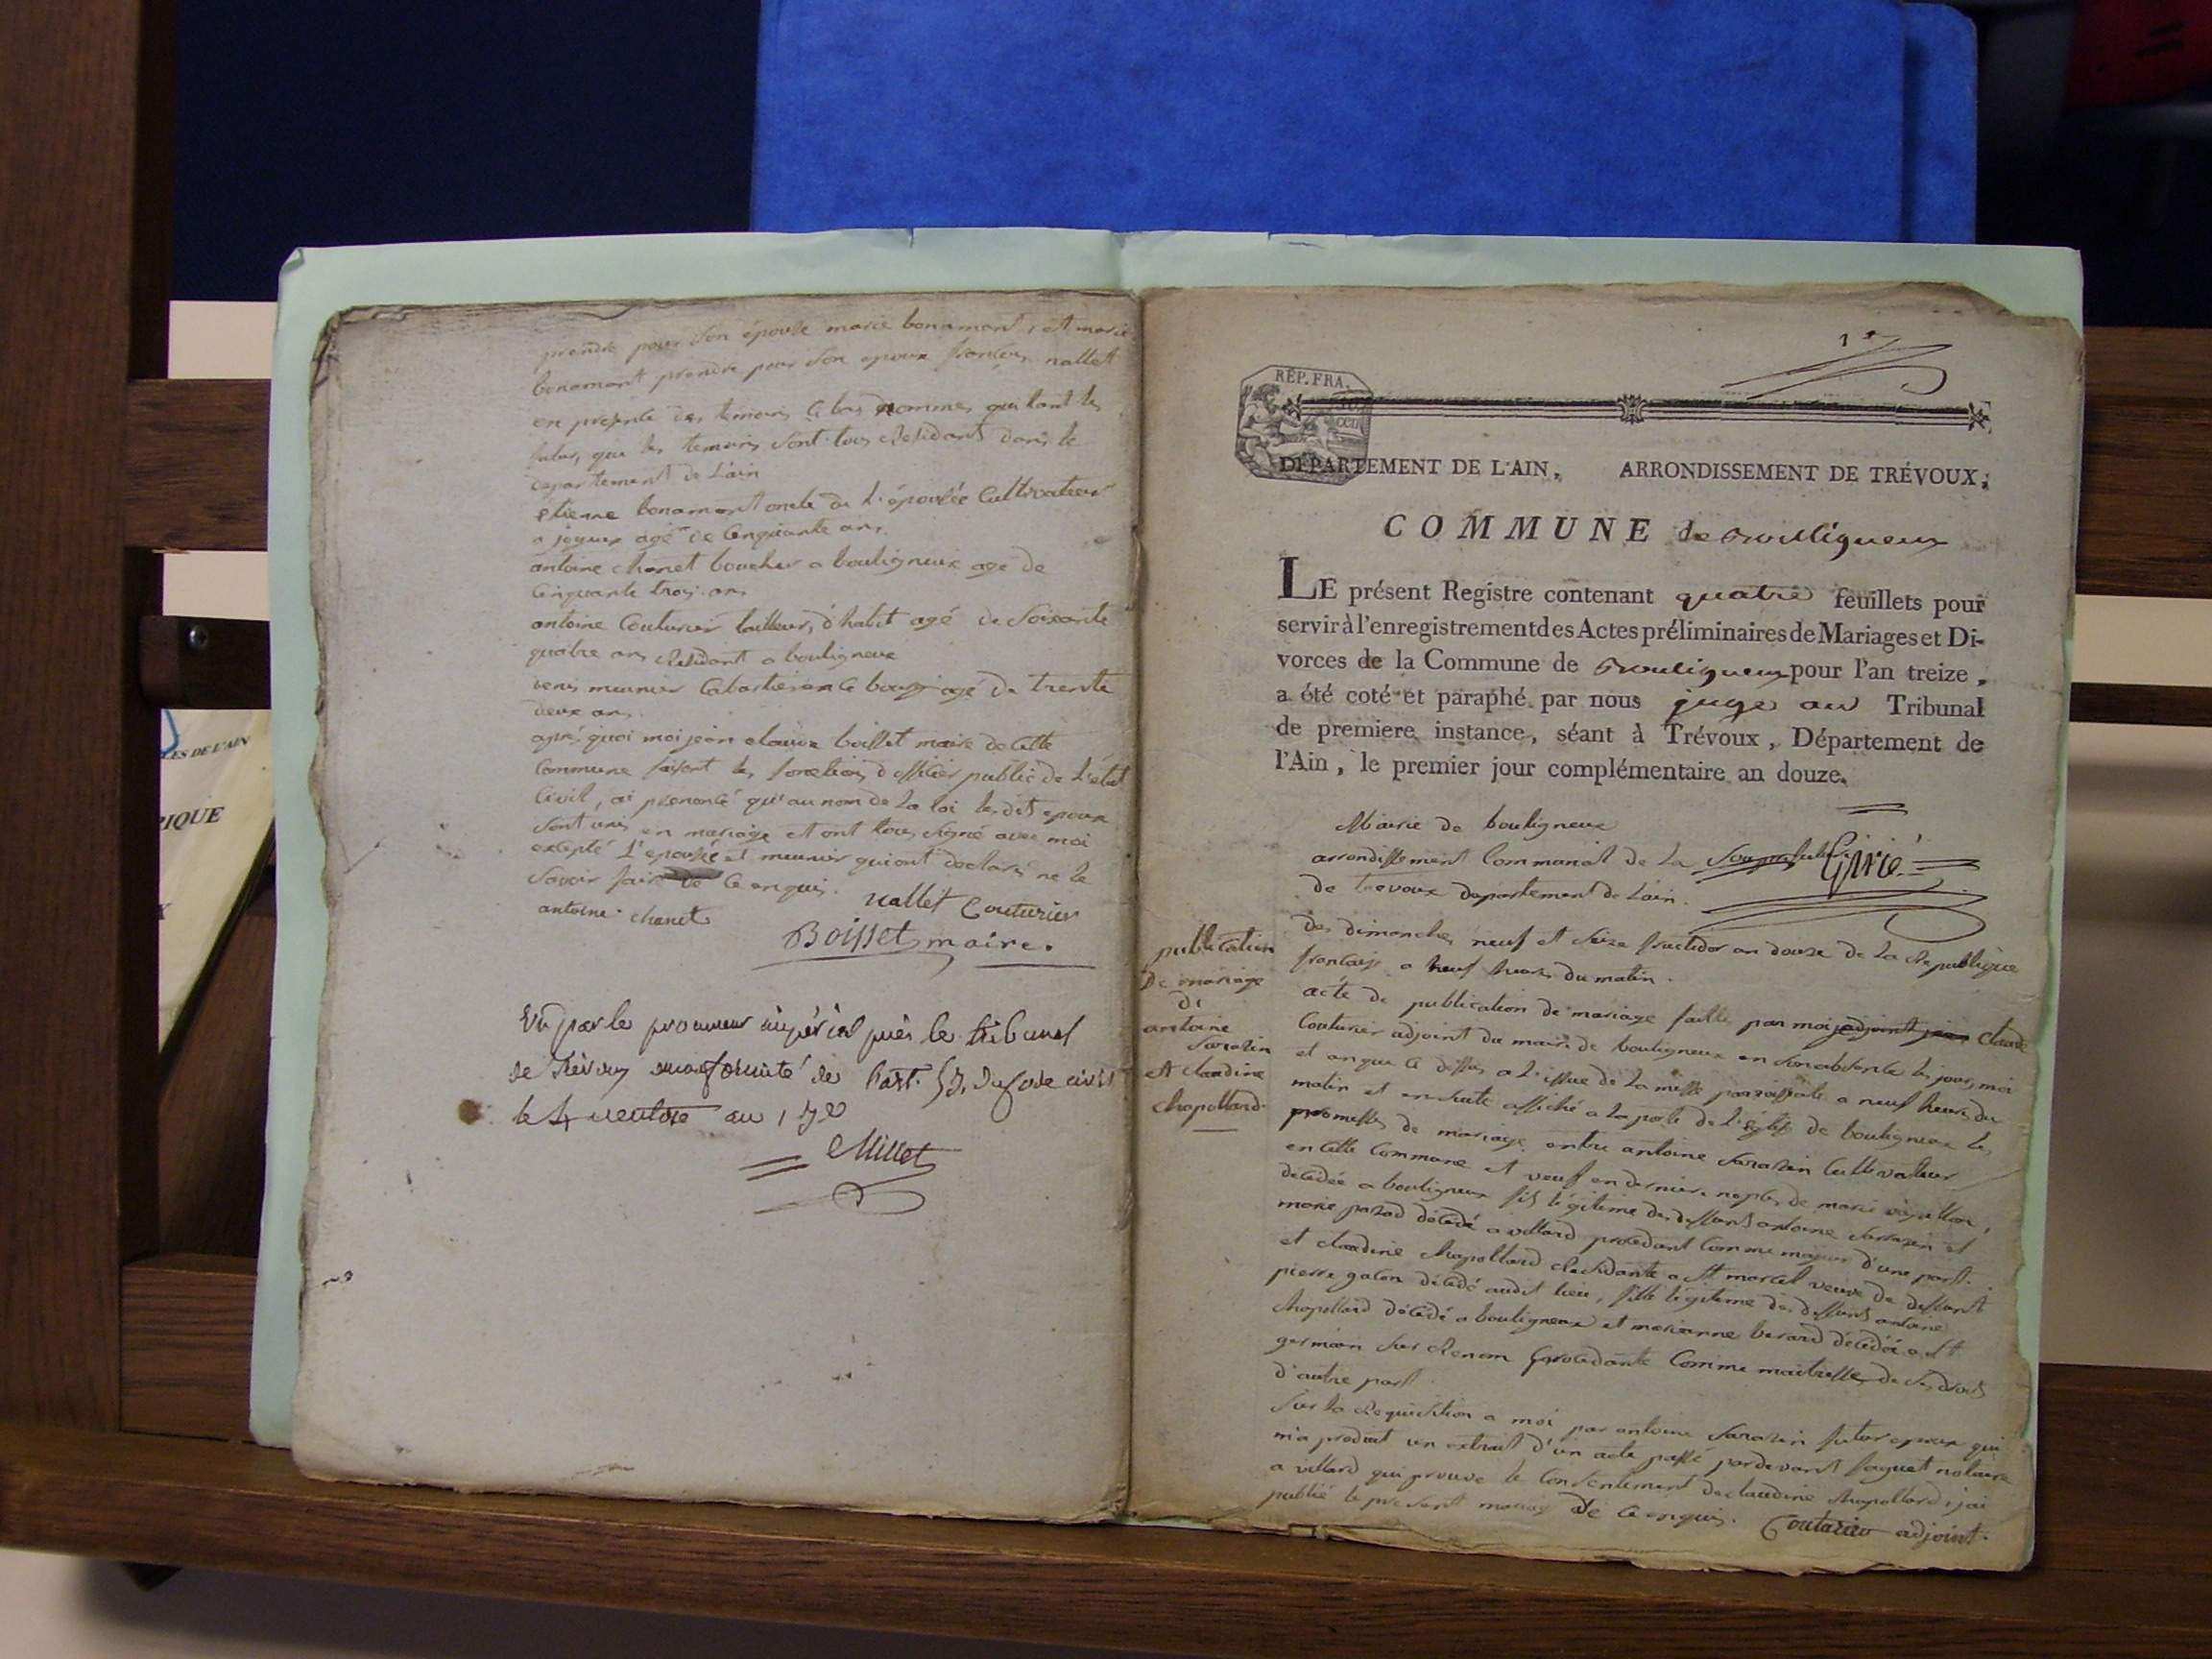 prendre pour son épouse marie bonamant, et marie
bonamant prendre pour son epoux françois nallet
en presence des temoins cy bas nommes que tant les
futur, que les temoins sont tous residants dans le
departement de L'ain
etienne bonamant oncle de L'épousée Cultivateur
a joyeux agé de Cinquante ans.
antoine chanet boucher a bouligneux age de
Cinquante trois ans
antoine Couturier tailleur d'habit agé de Soixante
quatre ans residant a bouligneux
denis meunier Cabartier en ce bourg agé de trente
deux ans.
après quoi moi jean claude boisset maire de cette
Commune faisant les fonctions d'officier public de L'état
Civil, ai prononcé qu'au nom de La loi lesdits epoux
sont unis en mariage et ont tous signé avec moi
excepté L'epousée et meunier qui ont declaré ne le
savoir faire de ce enquis. nallet Couturier
antoine chanet
Boisset maire.
Vu par le procureur impérial près le tribunal
de Trévoux en conformité de l'art. 53. du code civil
le 4 ventose an 13e
Millet
1er
RÉP. FRA.
DÉPARTEMENT DE L'AIN, ARRONDISSEMENT DE TRÉVOUX;
COMMUNE de Bouligneux
LE présent Registre contenant quatre feuillets pour
servir à l'enregistrement des Actes préliminaires de Mariages et Di-
vorces de la Commune de Bouligneux pour l'an treize,
a été coté et paraphé par nous juge au Tribunal
de premiere instance, séant à Trévoux, Département de
l'Ain, le premier jour complémentaire an douze.
Mairie de bouligneux
arrondissement Communal de La Souprefecture
de trevoux departement de L'ain.
publication
De mariage
de
antoine
Sarazin
et Claudine
Chapolland
des dimanches neuf et seize fructidor an douze de La republique
française a neuf heures du matin.
acte de publication de mariage faitte par moi adjoint jean Claude
Couturier adjoint du maire de bouligneux en son absence les jour, moi
et an que ce dessus a L'issue de La messe paroissiale a neuf heures du
matin et en suite affiché a La porte de L'églife de bouligneux les
promesses de mariage entre antoine Sarazin Cultivateur
en cette Commune et veuf en derniere nopces de marie
decedée a bouligneux fils légitime des deffunts antoine Sarazin et
marie decedé a villard procedant Comme majeur d'une part.
et claudine chapolland residante a St marcel veuve de deffunt
pierre galon décédé audit lieu, fille légitime des deffunts antoine
chapolland décédé a bouligneux et marianne berard décédée a St
germain sur renom procedante Comme maitresse de ses droits
d'autre part.
Sur la requisition a moi par antoine Sarazin futur epoux qui
m'a produit un extrait d'un acte passé pardevant faguet notaire
a villard qui prouve le Consentement de claudine chapolland, j'ai
publié le present mariage de ce enquis. Couturier adjoint.
ES DE L'AIN
RIQUE